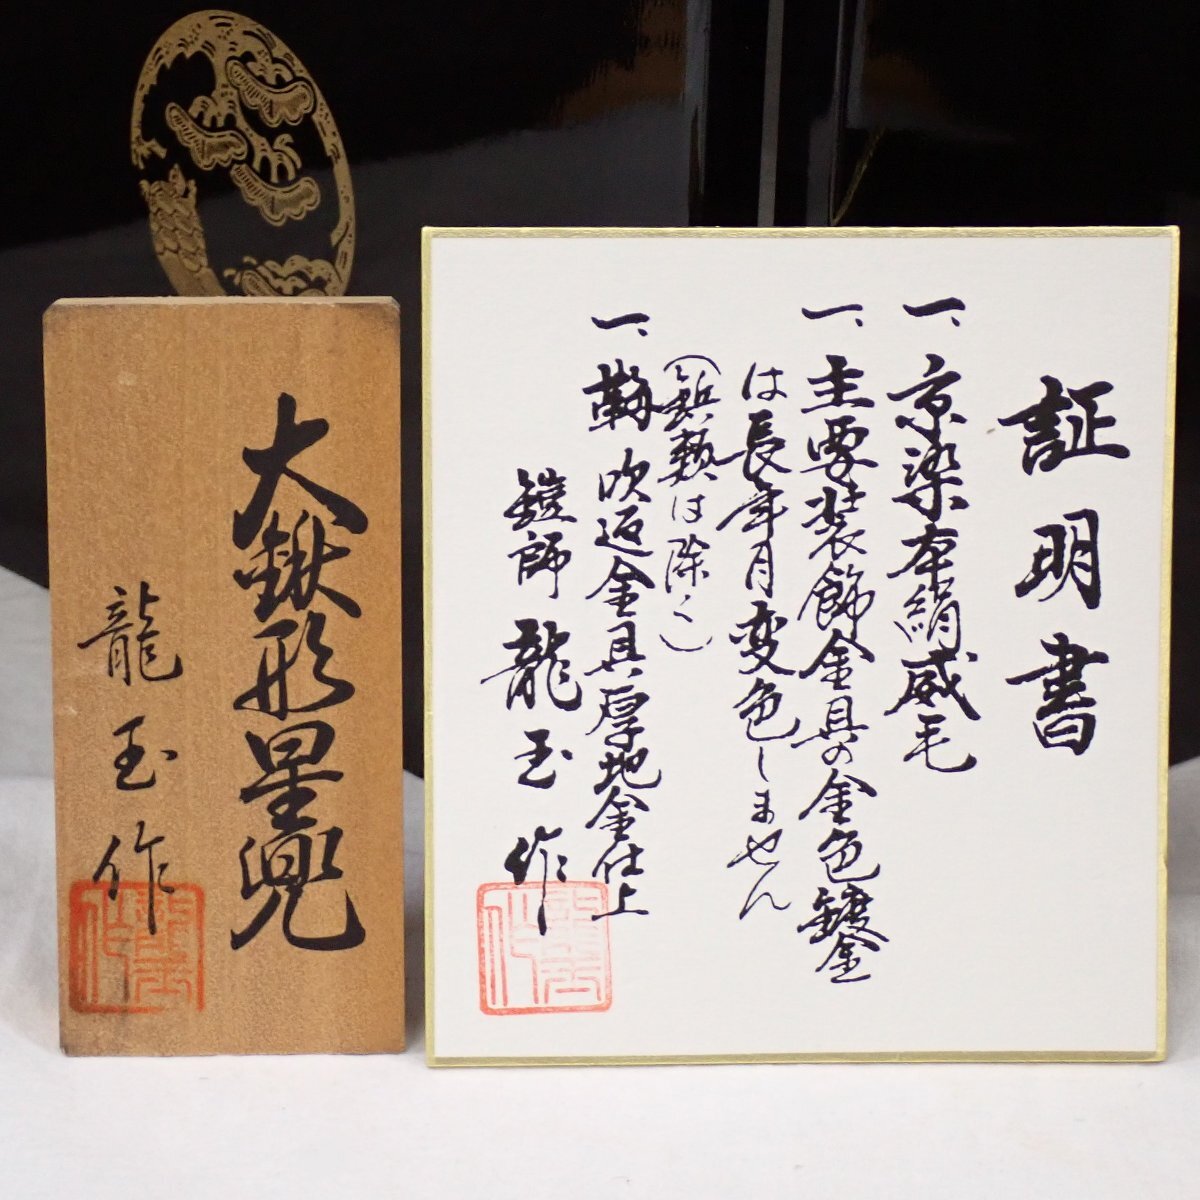 証明書
一、京染本絹威毛
一、主要装飾金具の金色鍍金
は長年月変色しません
（鋲類は除く）
一、䩺吹返金具厚地金仕上
鎧師 龍玉作
大鍬形星兜
龍玉作